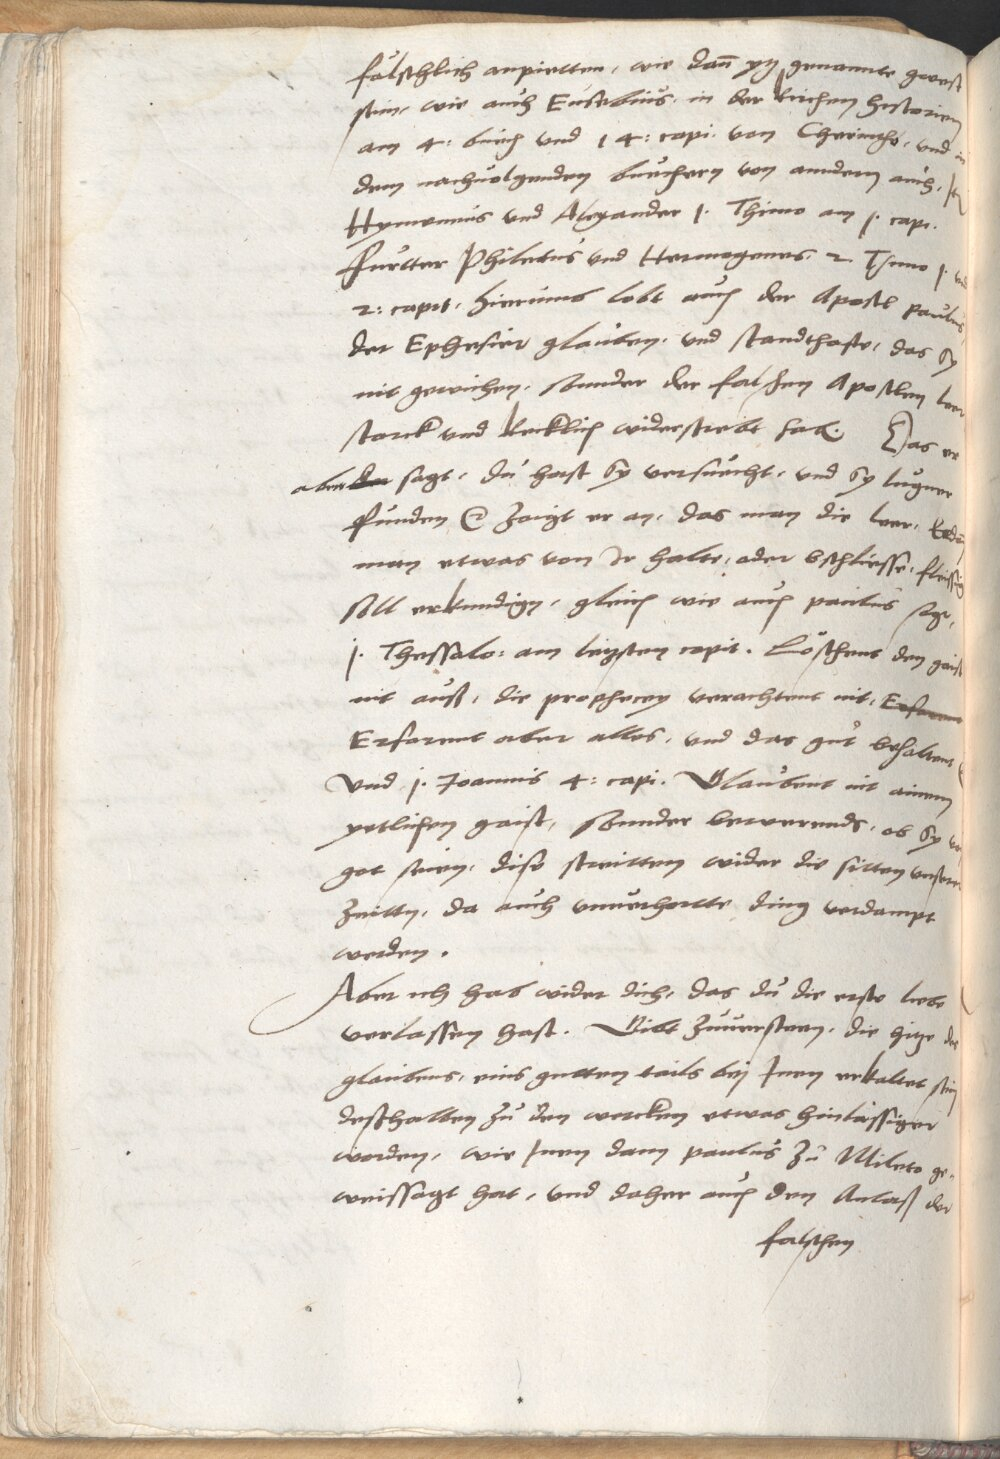 fälschlich anpietten, wie dañ yῃ genannte gwest
sein, wie auch Eusebius in der kirchen historien
am 4: buch und 14: capi. von Cherintho, und in
dem nachuolgenden buechern von anndern auch,
Hymoneus und Alexander 1. Thimo am 1. capi.
Furtter Philetus und Hermogenes. 2. Timo 1. und
2: capit. Hierinns lobt auch der Apostl paulus
der Ephesier glauben, und standthafte, das sy
nit gewichen, sonnder der falschen Apostlen leer
starck und kecklich widerstrebt hab. Das er
aber sagt, du hast sy versuecht, und sy lugner
funden &c Zaigt er an, das man die leer,
man etwas von Ir halte, oder bschliesse, fleissig
soll erkundigen, gleich wie auch paulus sagt,
1. Thessalo: am letzsten capit. Löschent den gaist
nit auß, die prophecey verachtent nit,
Erfarent aber alles, und das gut behaltent
Und 1. Joannis 4: capi. Glaubent nit ainem
yetlichen gaist, sonnder bewerends, ob sy von
got seien, dise streitten wider die sitten unserer
Zeitten, da auch unverhortte ding verdampt
werden.
Aber ich hab wider dich, das du die erste liebe
verlassen hast. Gibt zuuersteen, die hitze des
glaubens, eins gutten tails bej Inen erkaltet sein
deßhalben zu den wercken etwas hinlässiger
worden, wie Inen dann paulus zu Mileto ge-
weissagt hat, und daher auch den Anlaß der
falschen